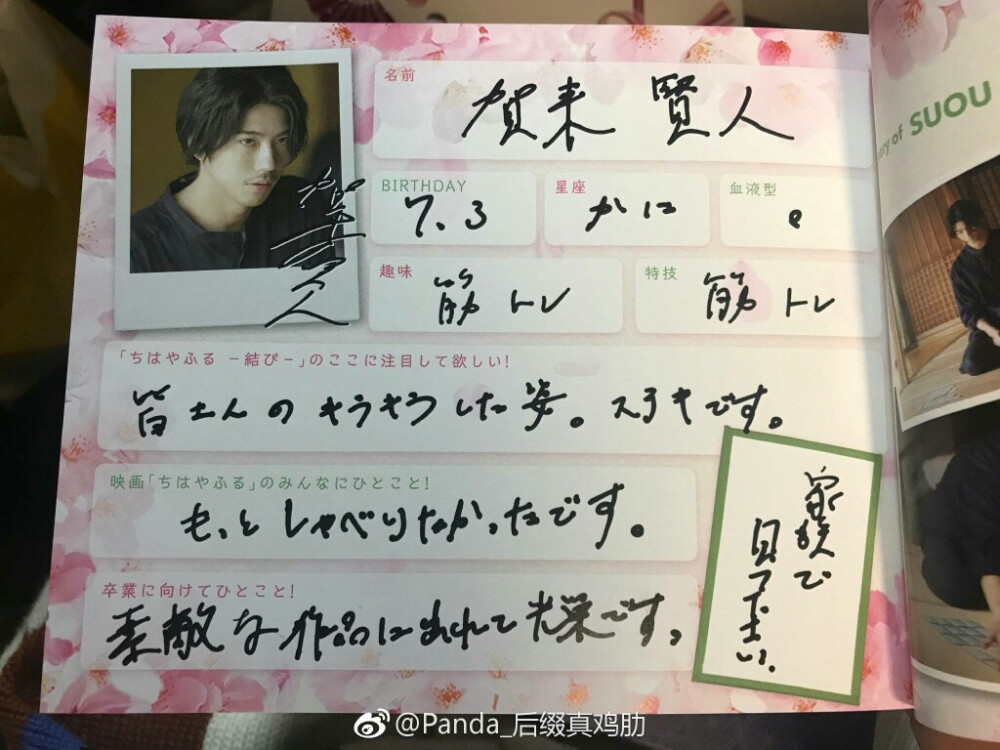 名前
賀来 賢人
BIRTHDAY
7.3
星座
かに
血液型
o
趣味
筋トレ
特技
筋トレ
「ちはやふる －結び－」のここに注目して欲しい!
皆さんのキラキラした姿。ステキです。
映画「ちはやふる」のみんなにひとこと!
もっとしゃべりたかったです。
卒業に向けてひとこと!
素敵な作品に出れて光栄です。
家族で
ory of SUOU
@Panda_后缀真鸡肋